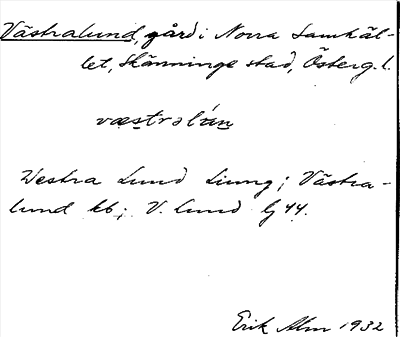 Västralund, gård i Norra Samkäl-
let, Skänninge stad, Österg. l.
væstralún
Westra Lund Liung; Västra-
lund kb; V. Lund Gj 44.
Erik Alm 1932